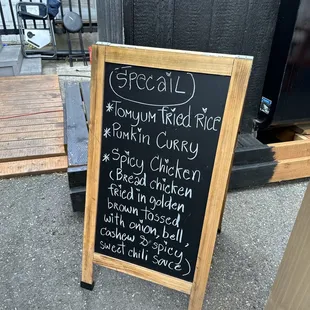 Specail
* Tomyum fried Rice
* Pumkin Curry
* Spicy Chicken
(Bread chicken
fried in golden
brown tossed
with onion, bell,
cashew & spicy
sweet chili sauce)